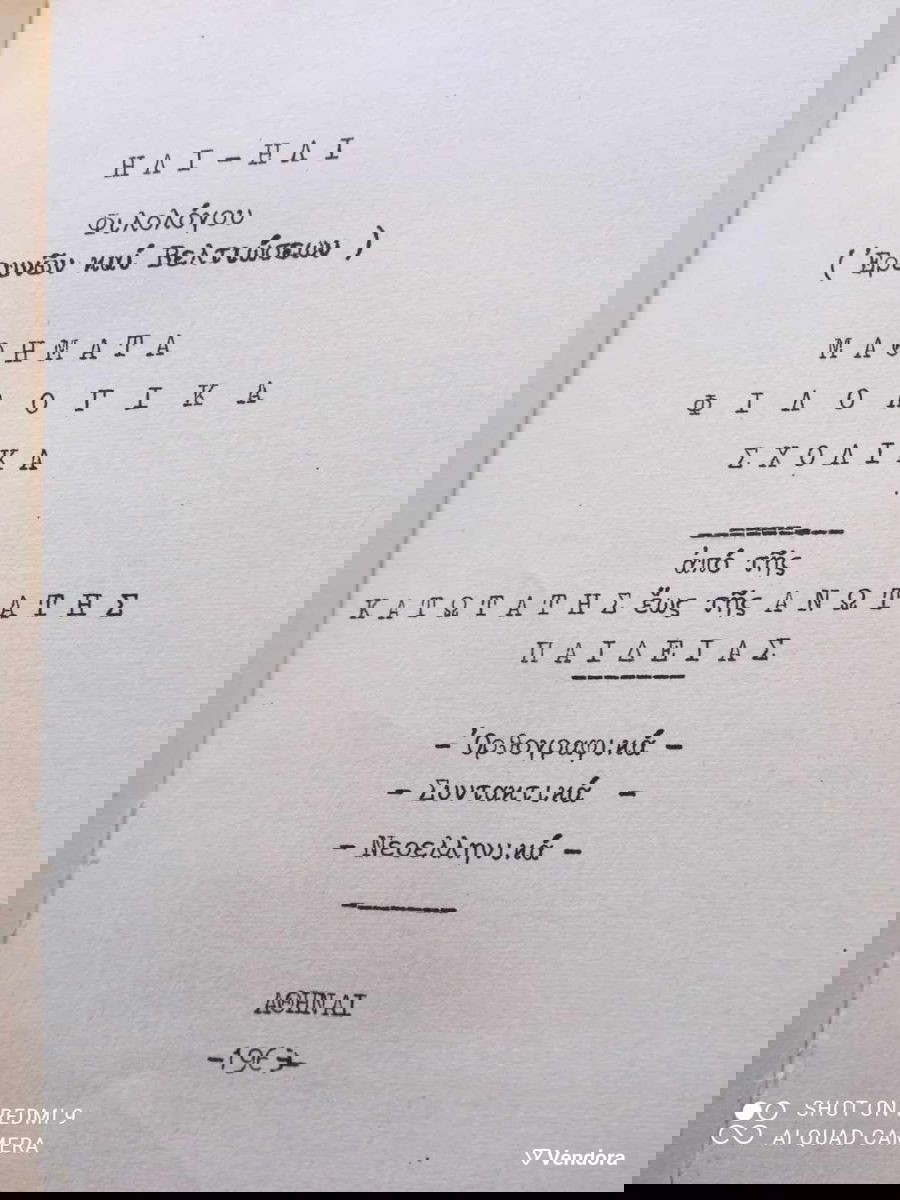 ΗΛΙ - ΗΛΙ
Φιλολόγου
( Ἐρευνῶν καί Βελτιώσεων )
ΜΑΘΗΜΑΤΑ
ΦΙΛΟΛΟΓΙΚΑ
ΣΧΟΛΙΚΑ
ἀπό τῆς
ΚΑΤΩΤΑΤΗΣ ἕως τῆς ΑΝΩΤΑΤΗΣ
ΠΑΙΔΕΙΑΣ
- Ὀρθογραφικά -
- Συντακτικά -
- Νεοελληνικά -
ΑΘΗΝΑΙ
SHOT ON REDMI 9
AI QUAD CAMERA
Vendora